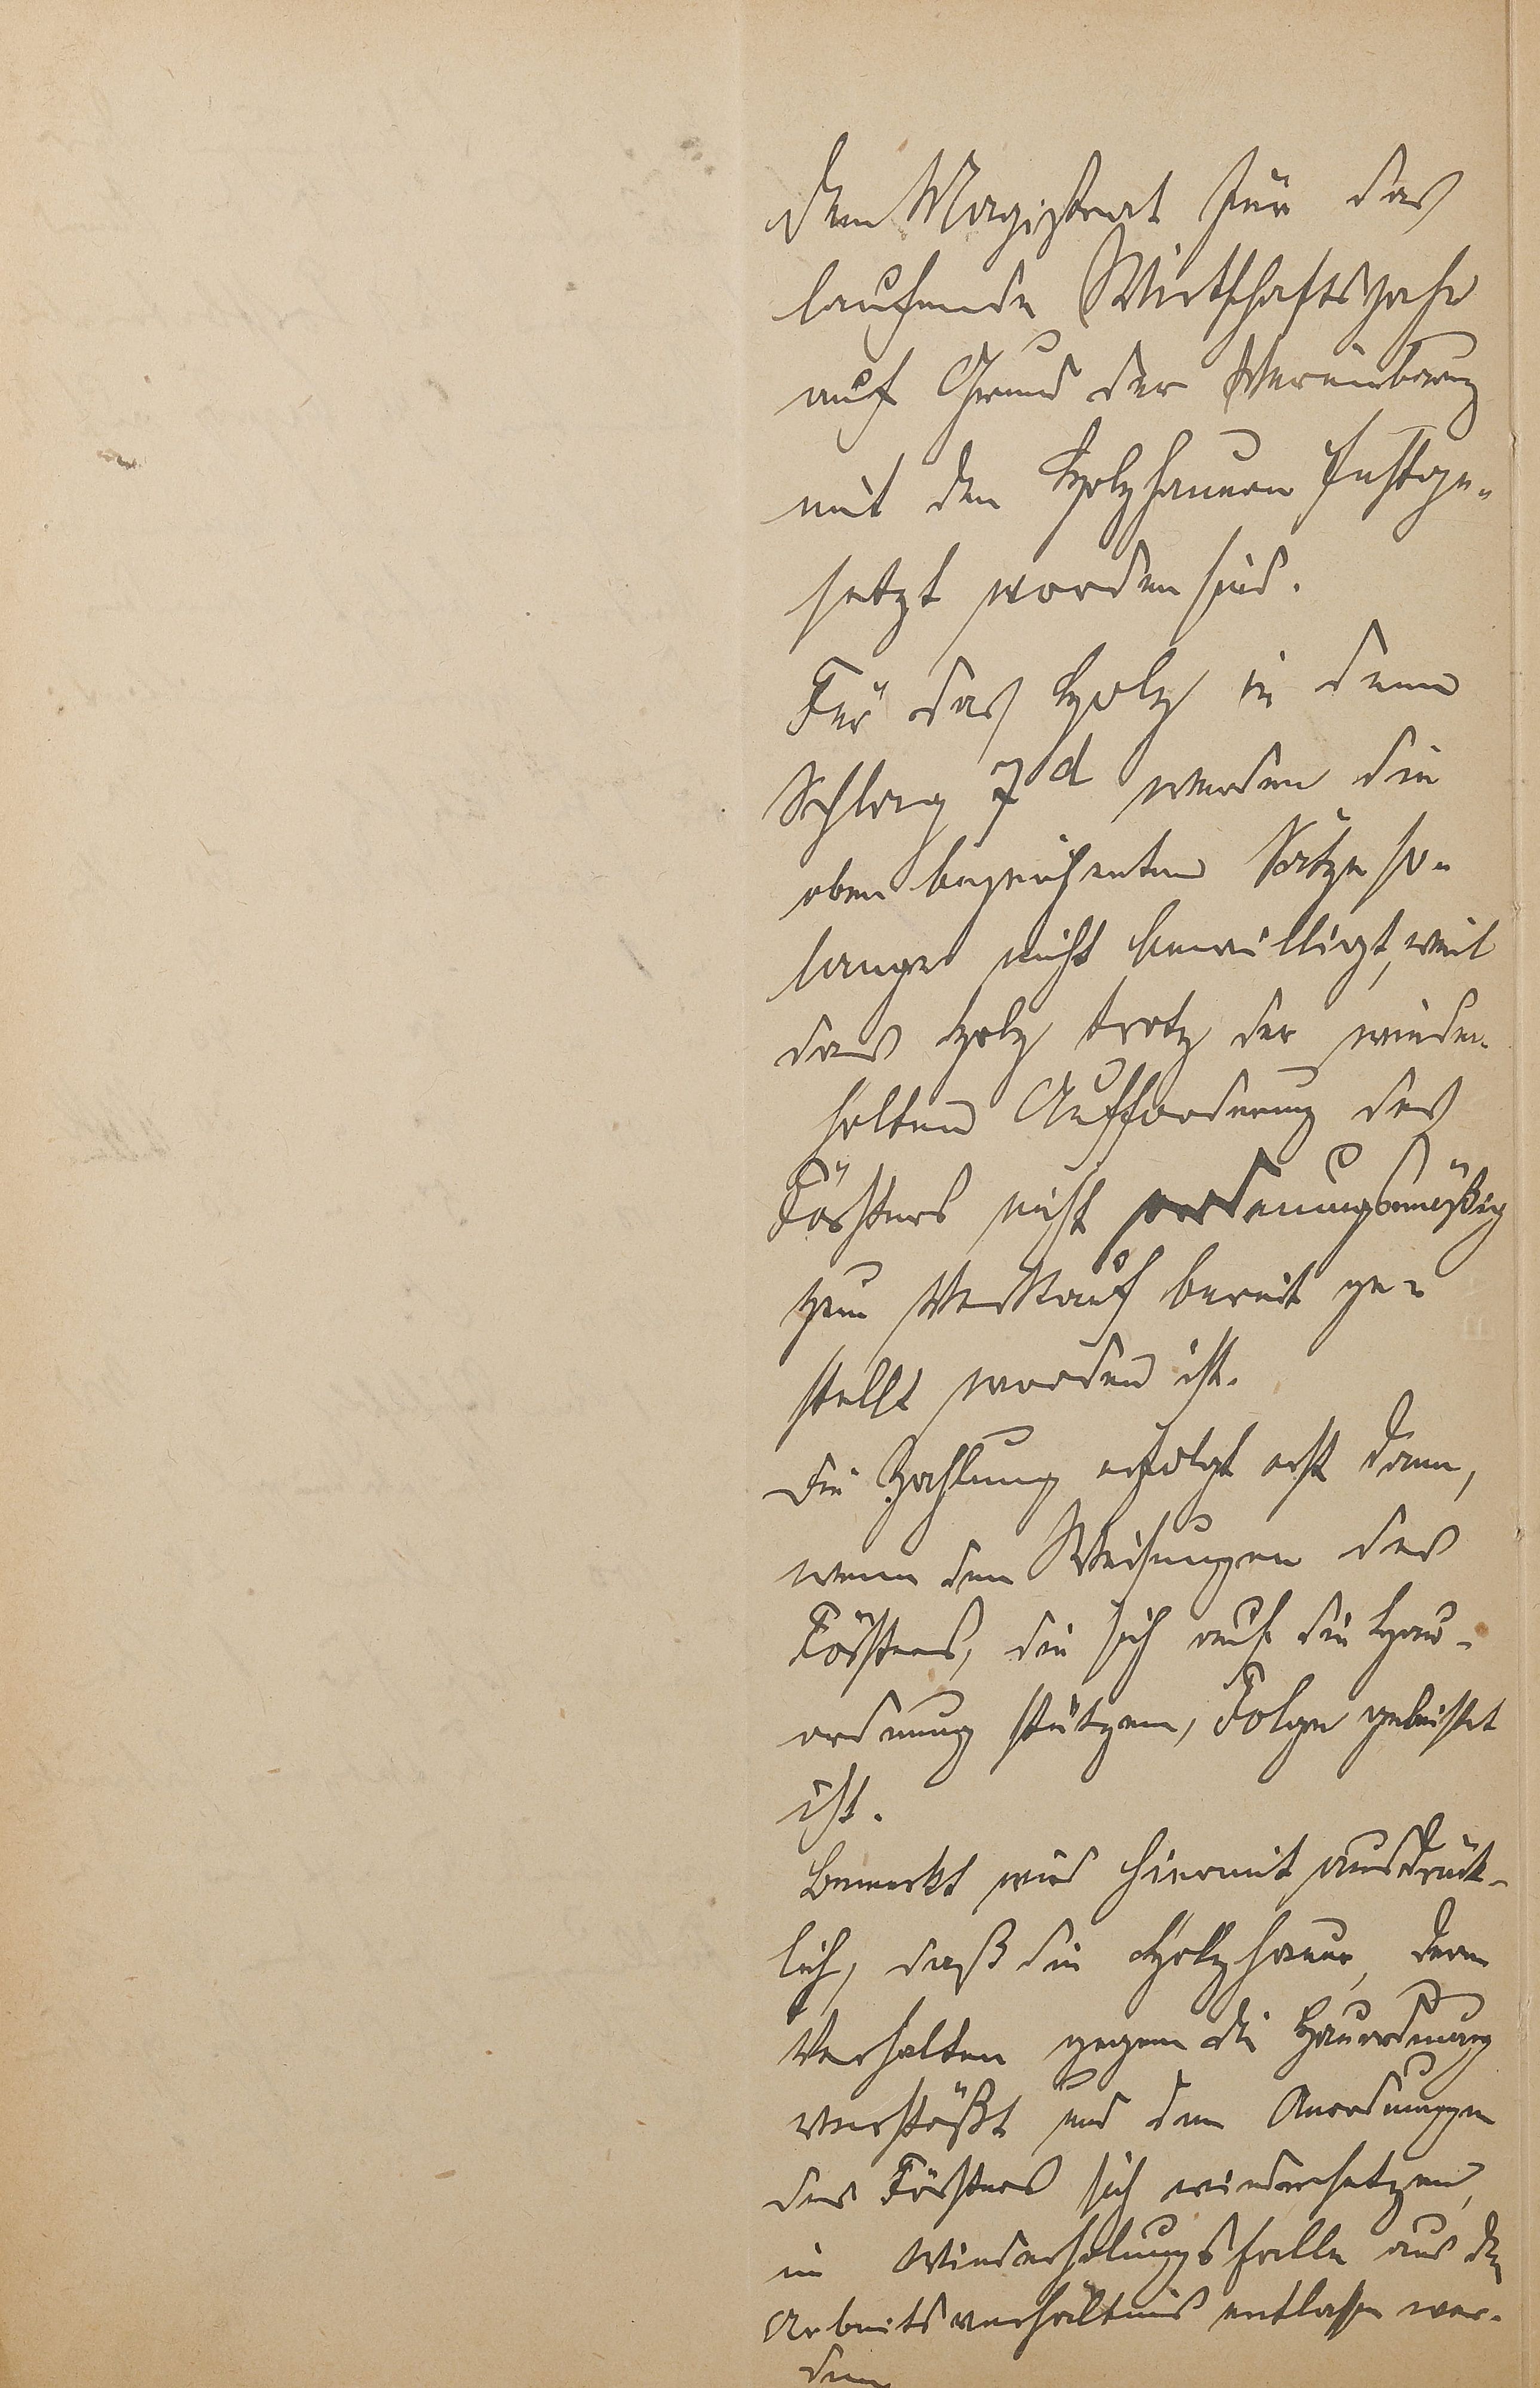 dem Magistrat für das
laufende Wirtschaftsjahr
auf Grund der Vereinbarung
mit den Holzhauern festge-
setzt worden sind.
Für das Holz in dem
Schlag 7d werden die
oben bezeichneten Sätze so-
lange nicht bewilligt, weil
das Holz trotz der wieder-
holten Aufforderung des
Försters nicht ordnungsmäßig
zum Verkauf bereit ge-
stellt worden ist.
Die Zahlung erfolgt erst dann,
wenn den Weisungen des
Försters, die sich auf die Hau-
ordnung stützen, Folge geleistet
ist.
Bemerkt wird hiermit ausdrück-
lich, daß die Holzhauer, deren
Verhalten gegen die Hauordnung
verstößt und den Anordnungen
des Försters sich wiedersetzen,
im Wiederholungsfalle aus dem
Arbeitsverhältnis entlassen wer-
den